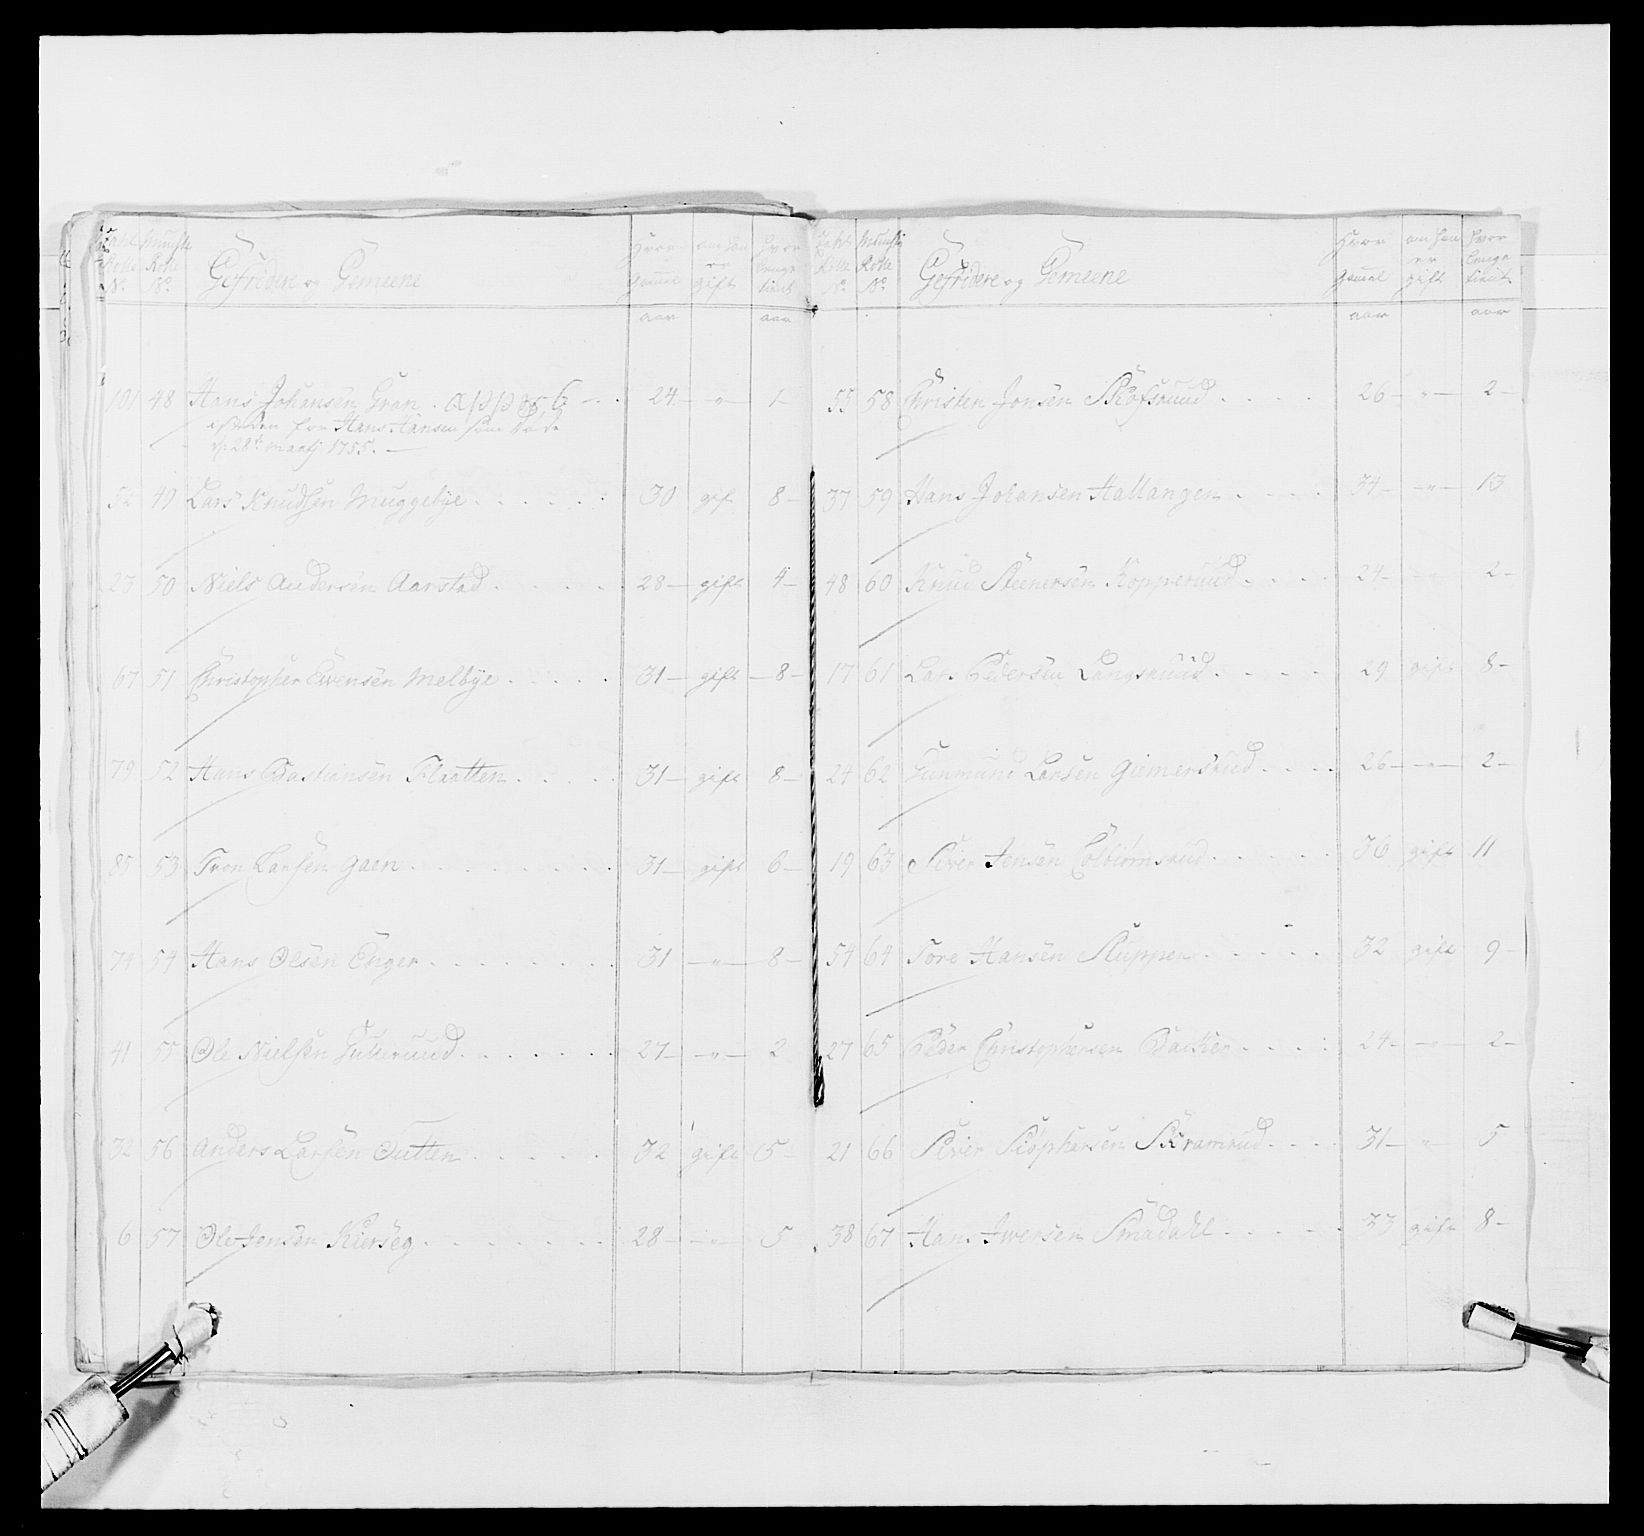 Rolle No. Munster Rolle No. Gefridere og Gemeene Hvor gamel aar om han er gift hvor lenge tient aar
101 48 Hans Johansen Gran . . . 24 — " — 1 —
isteden for Hans Hansen som døde
d. 28de Martj 1755. —
52 49 Lars Knudsen Muggebye . . . . . . 30 gift 8 —
23 50 Niels Andersen Aarstad . . . . . . 28 — gift 4 —
67 51 Christopher Evensen Melbye . . . . . 31 — gift — 8 —
79 52 Hans Bastiansen Flaatten . . . . . 31 — gift 8 —
85 53 Tron Larsen Gaen . . . . . . . . 31 — gift 6 —
74 54 Hans Olsen Enger . . . . . . . . 31 — " — 8 —
41 55 Ole Nielsen . . . . . . . 27 — " — 2
32 56 Anders Larsen . . . . . . 32 gift 5 —
6 57 Ole Jensen . . . . . . . . 28 — " — 5
Rolle No. Munster Rolle No. Gefridere og Gemeene Hvor gamel aar om han er gift hvor lenge tient aar
55 58 Christen Jonsen . . . . 26 — " — 2 —
37 59 Hans Johansen Hallangen . . . . 34 — " — 13
48 60 Knud Steenersen Kopperuud . . . . 24 — 2 —
17 61 Lars Pedersen Langsruud . . . . . 29 gift 8 —
24 62 Gunmund Larsen Giemersrud . . . . 26 — " — 2 —
19 63 Siver Jensen Colbiørnsrud . . . . . 36 gift 11
54 64 Tore Hansen Kuppen . . . . . . 32 gift 9 —
27 65 Peder Christophersen Backen . . . . 24 — " — 2 —
21 66 Siver Kramrud . . . . 31 — " 5
38 67 Hans Iversen Smådahl . . . . . 33 gift 8 —